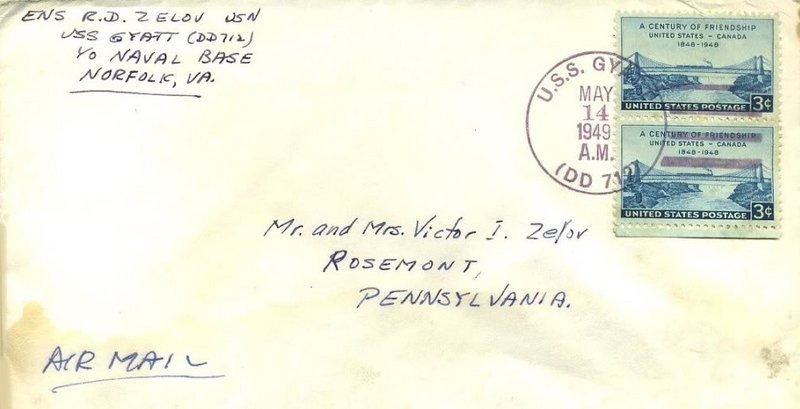 ENS R.D. ZELOV USN
USS GYATT (DD712)
℅ NAVAL BASE
NORFOLK, VA.
U.S.S. GYATT
MAY
14
1949
A.M.
(DD 712)
A CENTURY OF FRIENDSHIP
UNITED STATES - CANADA
1848-1948
UNITED STATES POSTAGE 3¢
A CENTURY OF FRIENDSHIP
UNITED STATES - CANADA
1848-1948
UNITED STATES POSTAGE 3¢
Mr. and Mrs. Victor I. Zelov
ROSEMONT,
PENNSYLVANIA.
AIR MAIL